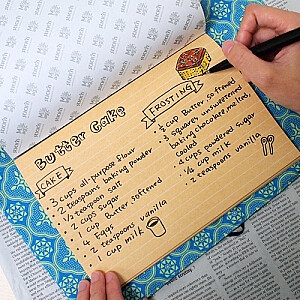 Butter Cake
CAKE
3 cups all-purpose flour
2 teaspoons baking powder
½ teaspoon salt
2 cups sugar
1 cup Butter softened
4 Eggs
2 teaspoons vanilla
1 cup milk
FROSTING
½ cup Butter softened
3 squares unsweetened
baking chocolate, melted,
cooled
4 cups powdered sugar
½ cup milk
2 teaspoons vanilla